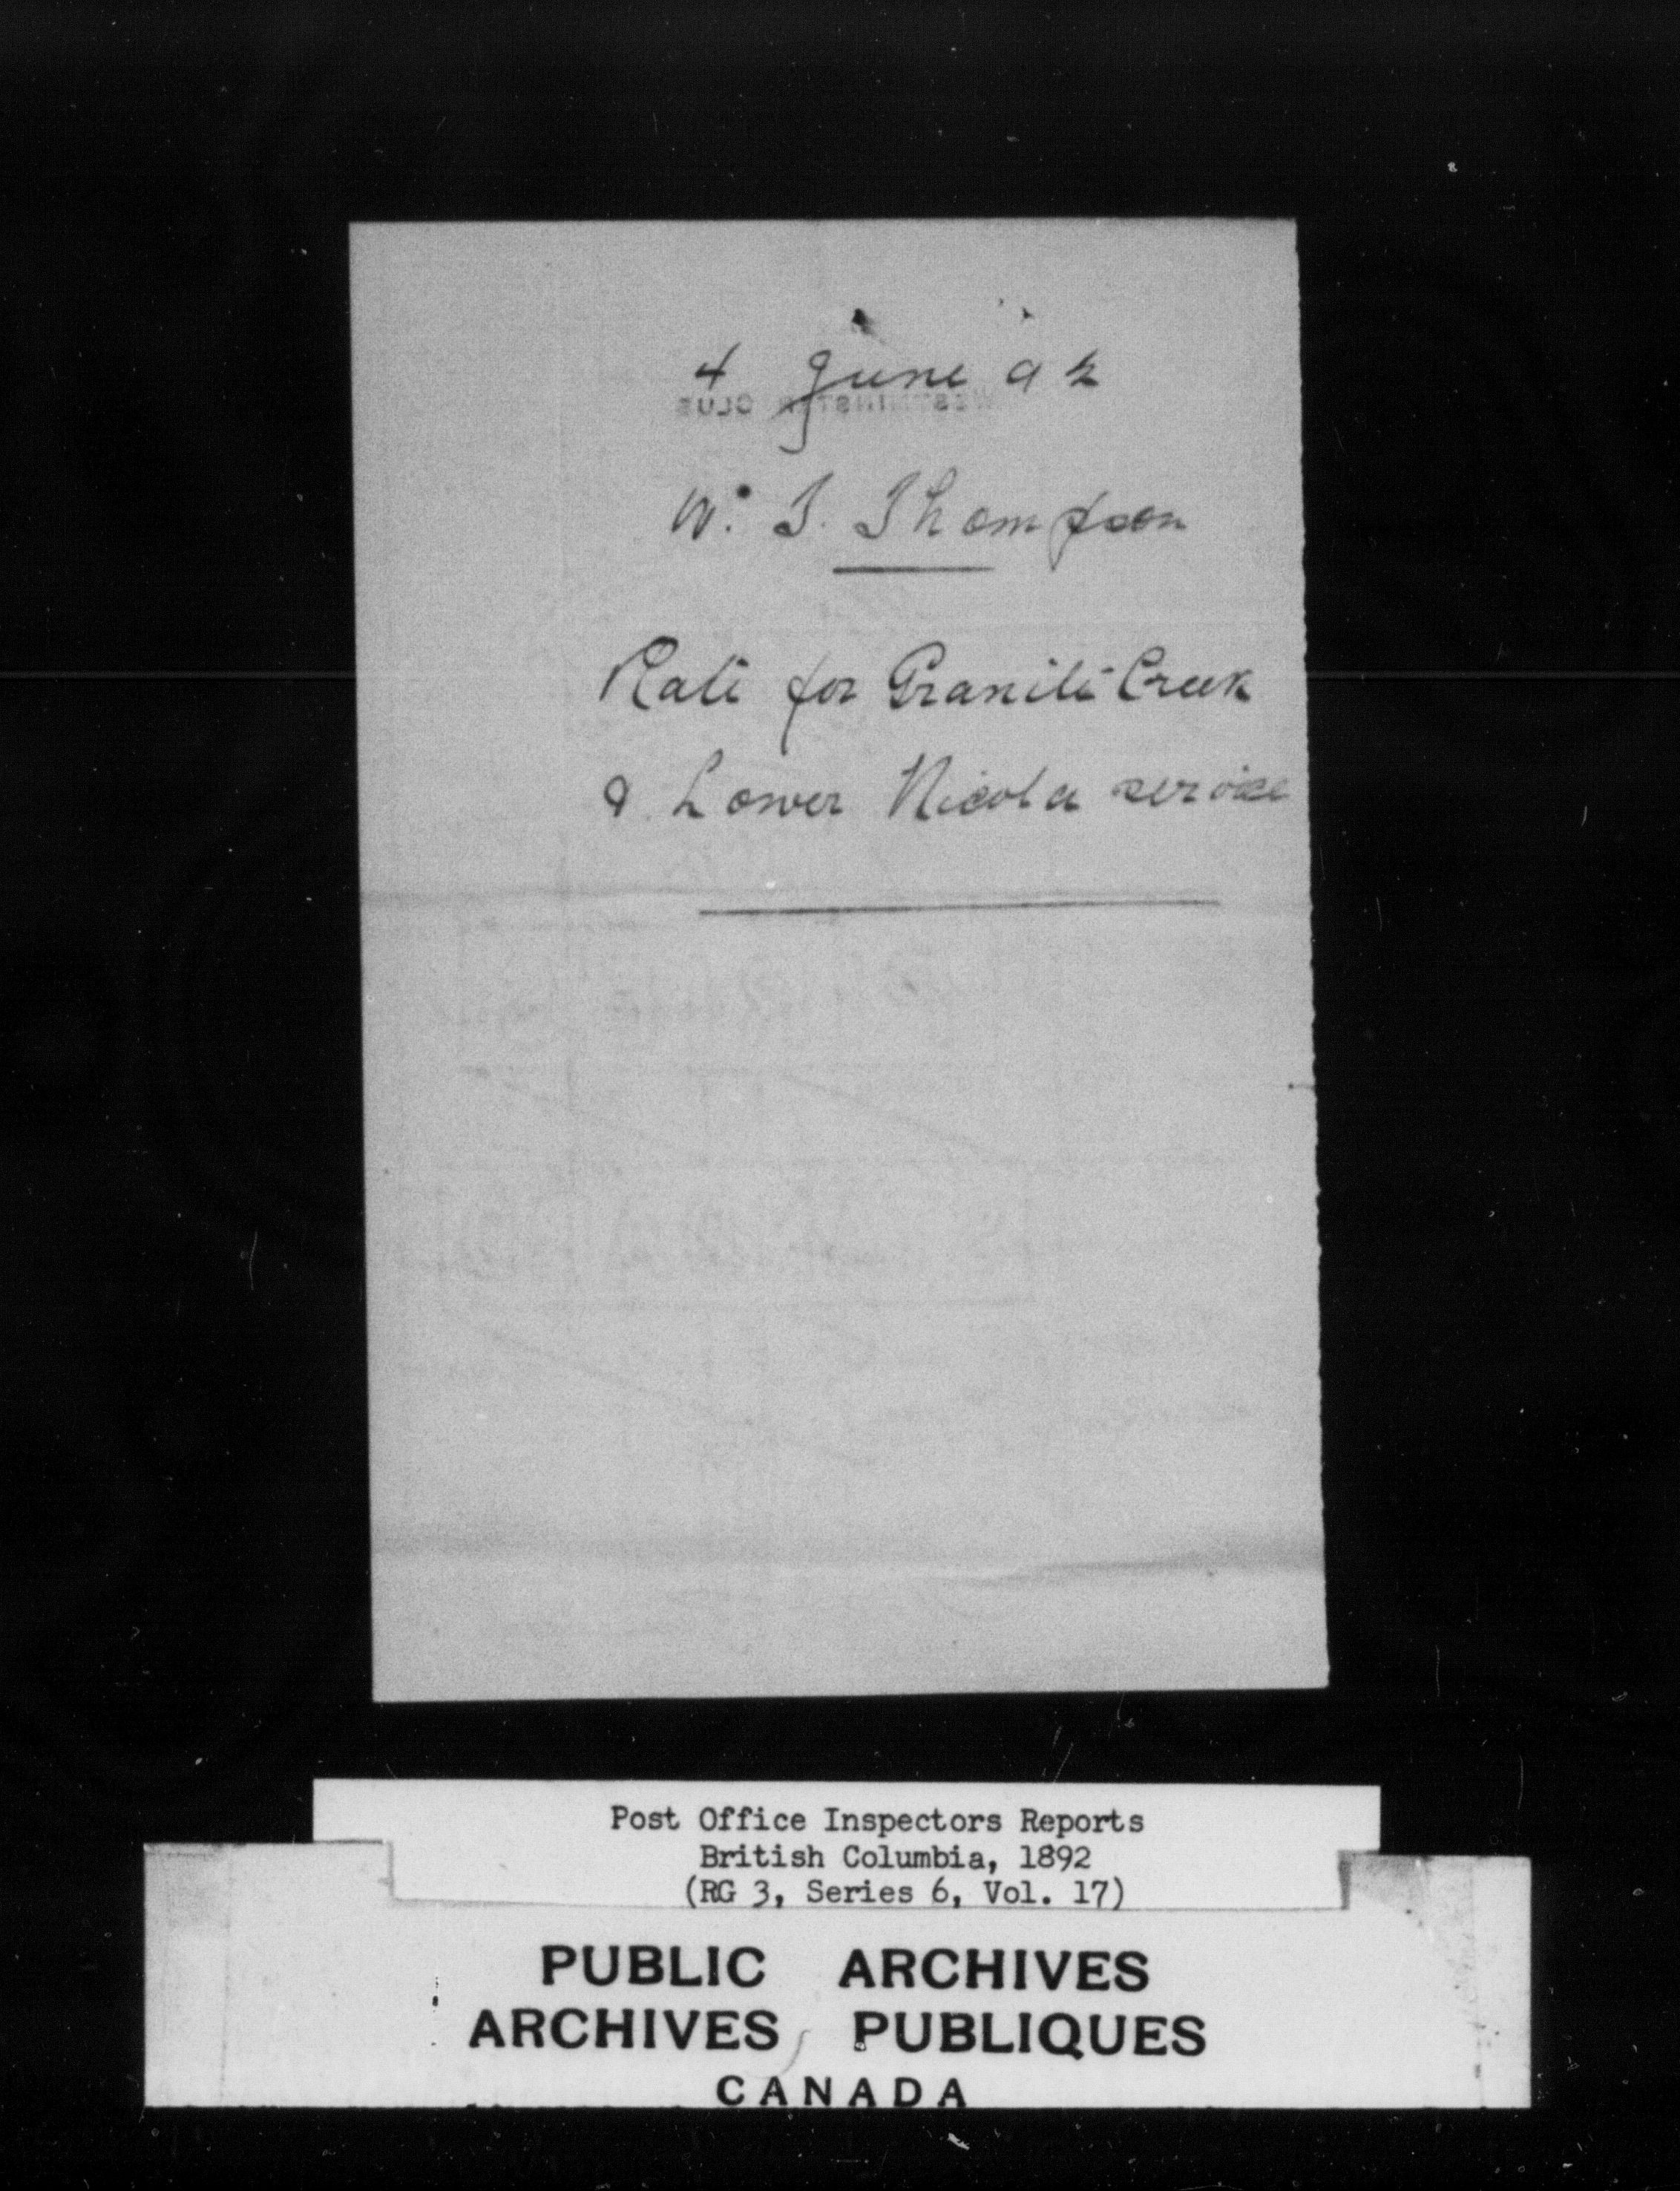 4 June 92
WESTMINSTER CLUB
W. T. Thompson
Rate for Granite Creek
& Lower Nicola service
Post Office Inspectors Reports
British Columbia, 1892
(RG 3, Series 6, Vol. 17)
PUBLIC ARCHIVES
ARCHIVES PUBLIQUES
CANADA